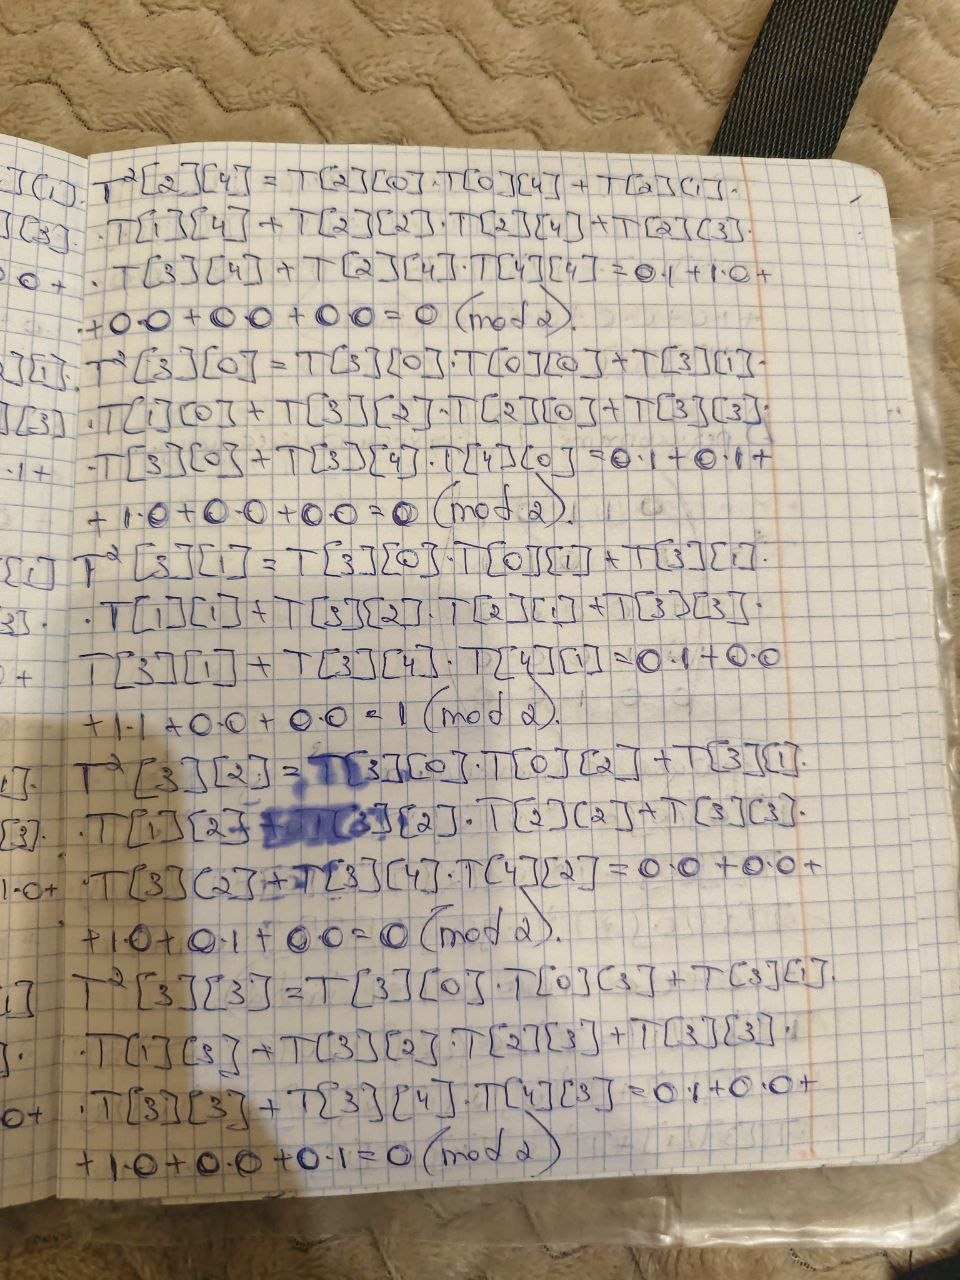 ][1].
][3].
0·0+
2][1].
][3]
·1+
[1]
3].
0+
1].
[3].
1·0+
1]
].
0+
T²[2][4] = T[2][0]·T[0][4] + T[2][1]·
·T[1][4] + T[2][2]·T[2][4] + T[2][3]·
·T[3][4] + T[2][4]·T[4][4] = 0·1 + 1·0 +
+ 0·0 + 0·0 + 0·0 = 0 (mod 2).
T²[3][0] = T[3][0]·T[0][0] + T[3][1]·
·T[1][0] + T[3][2]·T[2][0] + T[3][3]·
·T[3][0] + T[3][4]·T[4][0] = 0·1 + 0·1 +
+ 1·0 + 0·0 + 0·0 = 0 (mod 2).
T²[3][1] = T[3][0]·T[0][1] + T[3][1]·
·T[1][1] + T[3][2]·T[2][1] + T[3][3]·
T[3][1] + T[3][4]·T[4][1] = 0·1 + 0·0
+ 1·1 + 0·0 + 0·0 = 1 (mod 2).
T²[3][2] = T[3][0]·T[0][2] + T[3][1]·
·T[1][2] + T[3][2]·T[2][2] + T[3][3]·
·T[3][2] + T[3][4]·T[4][2] = 0·0 + 0·0 +
+ 1·0 + 0·1 + 0·0 = 0 (mod 2).
T²[3][3] = T[3][0]·T[0][3] + T[3][1]·
·T[1][3] + T[3][2]·T[2][3] + T[3][3]·
·T[3][3] + T[3][4]·T[4][3] = 0·1 + 0·0 +
+ 1·0 + 0·0 + 0·1 = 0 (mod 2)